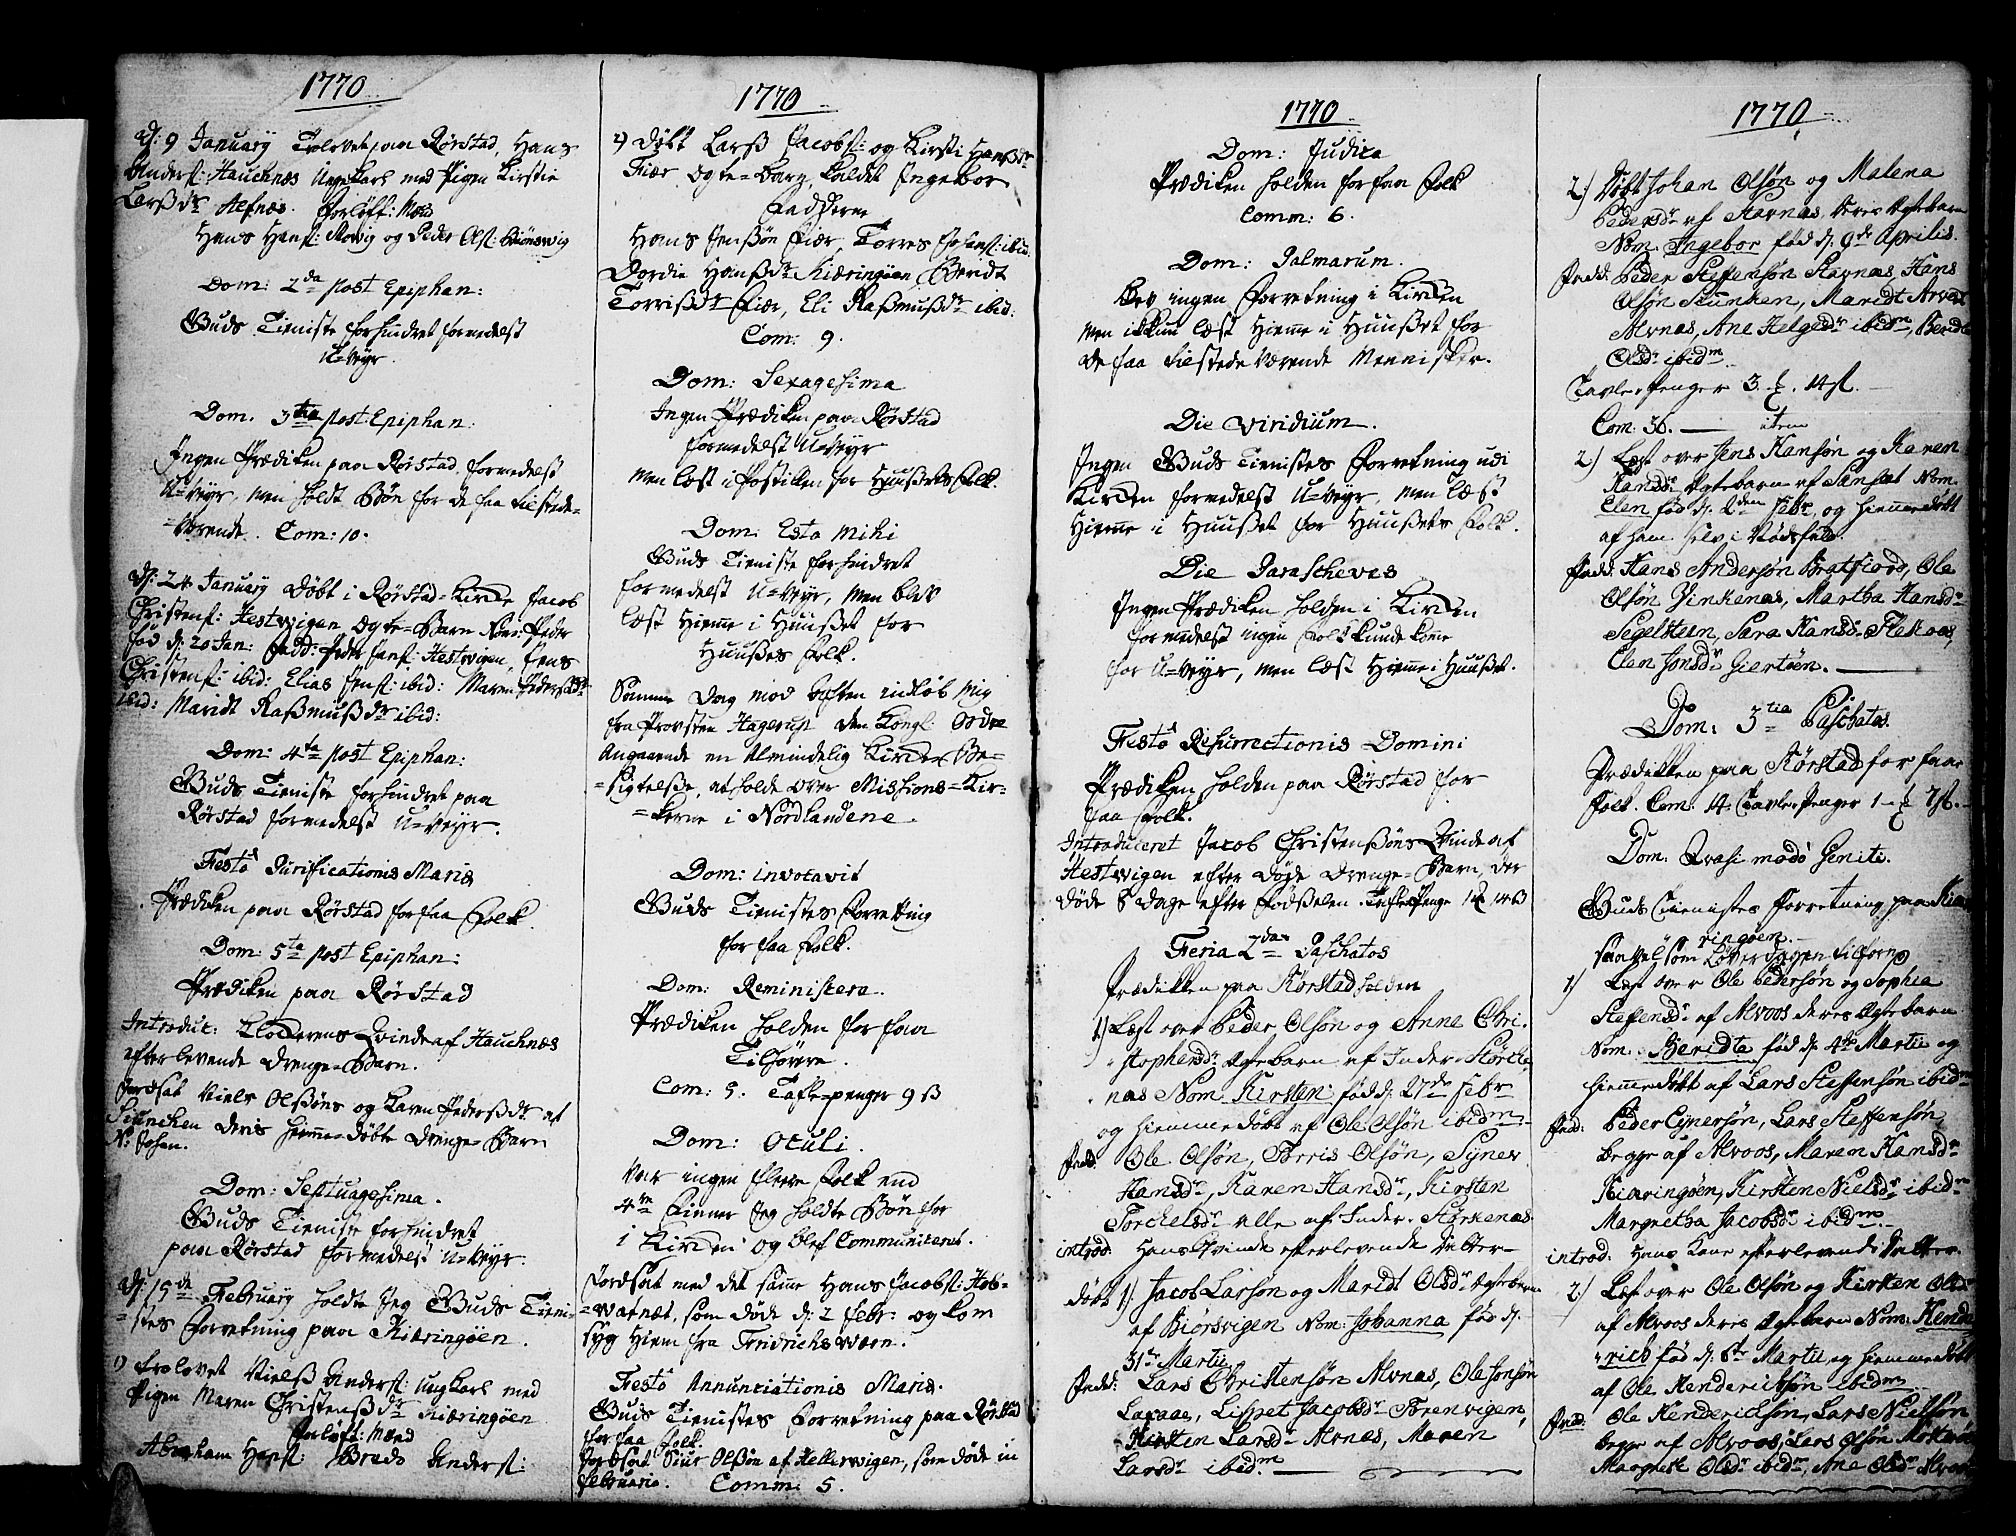 1770
d: 9 January Trolovet paa Rørstad, Hans
Anders: Hauchnæs Ungekarl med Pigen Kirstie
Larßdr Alfnæs. Forløft: Mænd
Hans Hans: Movig og Peder Ols: Biönswig
Dom: 2da post Epiphan:
Guds Tieniste forhindret formedelst
U=Veyr.
Dom. 3tia post Epiphan:
Ingen Prædiken paa Rørstad formedelst
U=Veyr, men holdt Bøn for de faa tilstede=
=værende. Com: 10.
d: 24 January døbt i Rørstad=Kircke Jacob
Christens: Hestvigen Ægte=Barn Nom: Peder
fød d: 20 Jan: Fadd: Peder Jans: Hestvigen, Jens
Christens: ibid: Elias Jens: ibid: Maren Pedersdr
ibid: Maridt Raßmußdr ibid:
Dom: 4ta post Epiphan:
Guds Tieniste forhindret paa
Rørstad formedelst U=Veyr.
Festo Purificationis Mariæ
Prædiken paa Rørstad for faa Folk
Dom: 5ta post Epiphan:
Prædiken paa Rørstad
Introduc: Klockerens Qvinde af Hauchnæs
efter levende Drenge=Barn.
Jordsat Niels Olßøns og Karen Pederßdr af
deris hiemme=døbte Drenge=Barn
N: Johan.
Dom: Septuagesima.
Guds Tieniste forhindret
paa Rørstad formedelst U=Veyr.
d: 15de February holdte Jeg Guds Tieni=
=stes Forretning paa Kiæringøen.
1) Trolovet Nielß Anders: Ungkarl med
Pigen Maren Christenßdr Kiæringøen
Forløft: Mænd
Abraham Hans: Anders:
1770
2) Døbt Larß Jacobs: og Kirsti Hanßdr
Fiær Ægte=Barn, kaldet Ingebor
Fadderne
Hans Jenßøn Fiær, Torres Johans: ibid.
Dordie Hanßdr Kiæringøen Berdt
Torrißdr Fiær, Eli Raßmußdr ibid:
Com: 9.
Dom: Sexagesima
Ingen Prædiken paa Rørstad
formedelst U=Veyr
men læst i Postillen for Huusets Folk.
Dom: Esto Mihi
Guds Tieniste forhindret
formedelst U=Veyr, men blev
læst hiemme i Huuset for
Huußets Folk.
Samme Dag mod Aften indløb mig
fra Provsten Hagerup den Kongl: Ordre
angaaende en Almindelig Kircke Be=
=sigtelse, at holde over Missions=Kir=
=kerne i Nordlandene.
Dom: invocavit
Guds Tienistes Forretning
for faa Folk.
Dom: Reminiscere.
Prædiken holden for faa
Tilhørere.
Com: 5. Tafle=penger 9 ß
Dom: Oculi.
Var ingen fleere Folk end
4re Finner Jeg holdte Bøn for
i Kircken og blef Communiceret.
Jordsat med det samme Hans Jacobs: Hob=
=vatnet, som døde d: 2 Febr: og kom
syg hiem fra Fridrichsværn.
Festo Annunciationis Mariæ.
Guds Tienistes Forretning paa Rørstad
for faa Folk.
Jordsat Siur Olßøn af Hellervigen, som døde in
februario. Comm: 5.
1770
Dom: Judica
Prædiken holden for faa Folk
Comm: 6.
Dom: Palmarum.
Blev ingen Forretning i Kircken
men ikkun læst hiemme i Huußet for
de faa tilstede værende Mennisker.
Die viridium.
Ingen Guds Tienistes Forretning udi
Kircken formedelst U=Veyr, men læst
hiemme i Huuset for Huußets Folk.
Die Parasceves
Ingen Prædiken holden i Kircken
formedelst ingen Folk kunde kome
for U=Veyr, men læst hiemme i Huuset.
Festo Resurrectionis Domini
Prædiken holden paa Rørstad for
faa Folk.
Introduceret Jacob Christenßøns Qvinde af
Hestvigen efter døde Drenge=Barn, der
døde 8 dage efter Fødselen. Tafle Penge 1 14 ß
Feria 2da Paschatos
Prædikken paa Rørstad holden
1) Læst over Peder Olsøn og Anne Chri=
=stophersdr Ægtebarn af Inder=Størcke
næs Nom. Kirsten fød d: 27de Febr
og hiemmedøbt af Ole Olsøn ibidm
Fad: Ole Olsøn, Torris Olsøn, Synev
Hansdr, Karen Hansdr, Kirsten
Torchelsdr alle af Inder=Størkenæs
introd: Hans Qvinde efterlevende Datter
døbt 1) Jacob Larsøn og Maridt Olsdr Ægtebarn
af Biörsvigen Nom: Johanna fød d:
31te Martii
Fadd: Lars Christensøn Alvnæs, Ole Jonsøn
Laxaae, Lisbet Jacobsdr Sørenvigen,
Kirsten Larsdr Alvnes, Maren
Larsdr ibidm
1770
2) Døbt Johan Olsøn og Malena
Pedersdr af Stavnæs deris Ægtebarn
Nom. Ingebor fød d: 9de Aprilis.
Fadd: Peder Steffensøn Stavnæs, Hans
Olsøn Skunken, Maridt
Alvnæs, Ane Helgedr ibidm, Berdte
Olsdr ibidm
Tavle=Penger 3 14 ß.
Com: 30. item
2) Læst over Jens Hansøn og Karen
Handsdr Ægtebarn af Sanset Nom.
Elen fød d: 2den Febr, og hiemmedøbt
af ham selv i Nødsfald.
Fadd: Hans Andersøn Bratfiord, Ole
Olsøn Zinkenæs, Martha Hansdr
Segelsteen, Sara Hansdr
Elen Jonsdr Giertøen.
Dom: 3tia Paschatos
Prædikken paa Rørstad for faae
Folk. Com. 14. Tavle=Penger 1 7 ß.
Dom: Qvasi modo Geniti.
Guds Tienistes Forretning paa Kiæ
ringøen.
saavel som Løverdagen tilforn
1) Læst over Ole Pedersøn og Sophia
Steffensdr af Alvoos deres Ægtebarn
Nom. Beridte fød d: 4de Martii og
hiemmedøbt af Lars Steffensøn ibidm
Fad: Peder Eynersøn, Lars Steffensøn,
begge af Alvoos, Maren Hansdr
Kiæringøen, Kirsten Nielsdr ibidm
Margretha Jacobsdr ibidm
introd: Hans Kone efterlevende Datter.
2) Læst over Ole Olsøn og Kirsten Olsdr
af Alvoos deres Ægtebarn Nom. Hend
=rich fød d: 8de Martii og hiemmedøbt
af Ole Hendericksøn ibidm
Fad: Ole Henderichsøn, Lars Nielsøn
begge af Alvoos, Lars Olsøn
Margrete Olsdr ibidm, Ane Olsdr Alvoos